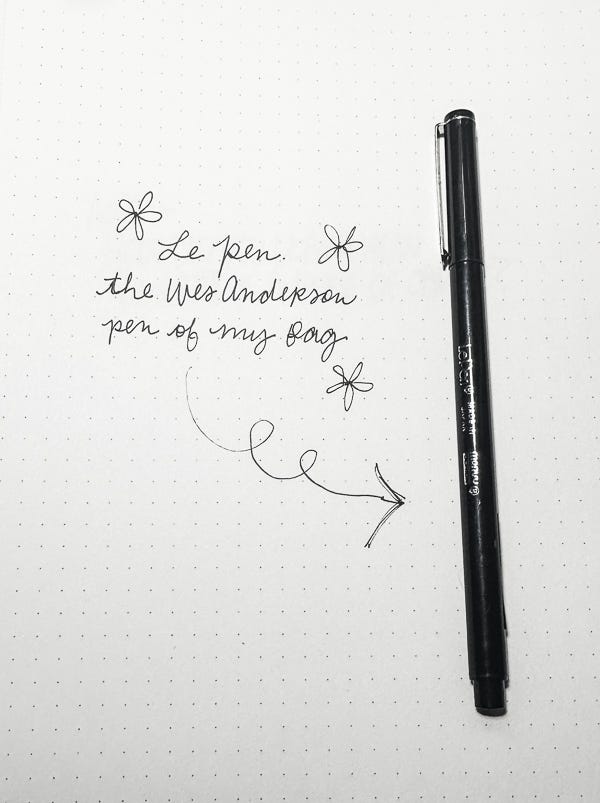 Le pen.
the Wes Anderson
pen of my bag
LePen
MADE IN
JAPAN